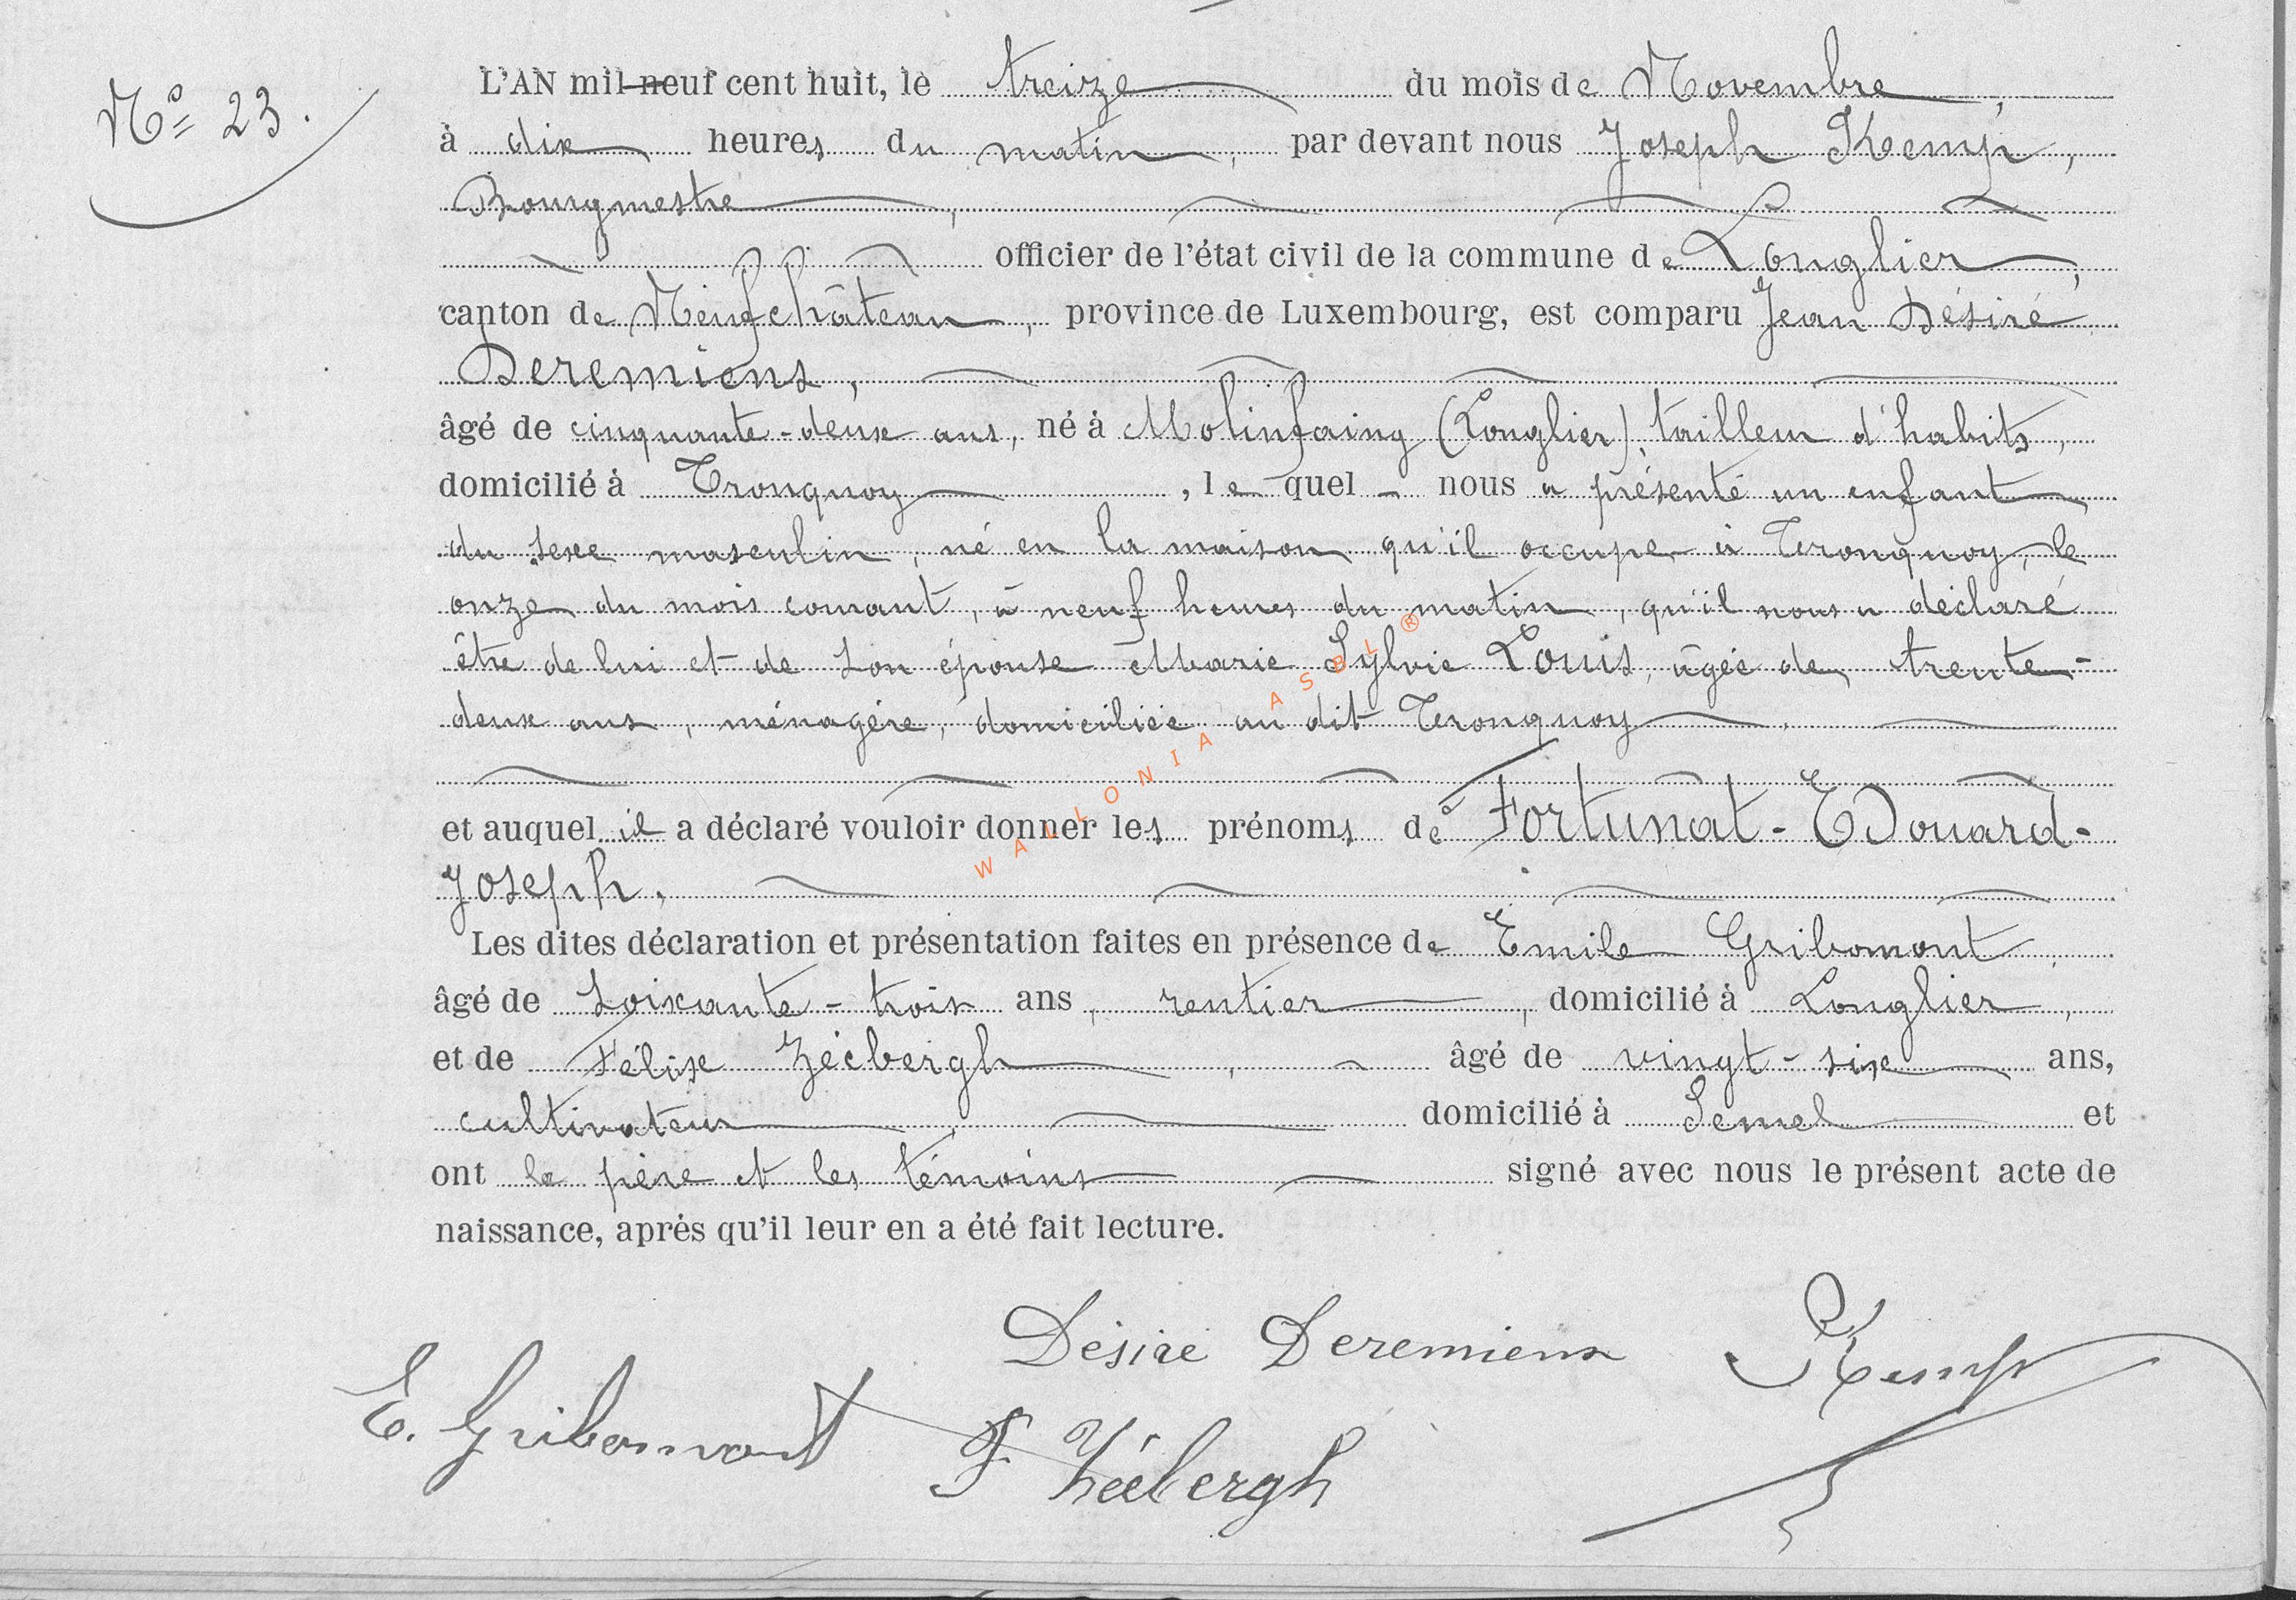 Nº 23.
L'AN mil neuf cent huit, le treize du mois de Novembre,
à dix heures du matin, par devant nous Joseph Kemp,
Bourgmestre,
officier de l'état civil de la commune de Longlier,
canton de Neufchâteau, province de Luxembourg, est comparu Jean Désiré
Deremiens,
âgé de cinquante-deux ans, né à Molinfaing (Longlier), tailleur d'habits,
domicilié à Tronquoy, lequel nous a présenté un enfant
du sexe masculin, né en la maison qu'il occupe à Tronquoy, le
onze du mois courant, à neuf heures du matin, qu'il nous a déclaré
être de lui et de son épouse Marie Sylvie Louis, âgée de trente-
deux ans, ménagère, domiciliée au dit Tronquoy.
et auquel il a déclaré vouloir donner les prénoms de Fortunat-Edouard-
Joseph.
Les dites déclaration et présentation faites en présence de Emile Gribomont,
âgé de soixante-trois ans, rentier, domicilié à Longlier,
et de Félix Zéebergh, âgé de vingt-six ans,
cultivateur, domicilié à Semel et
ont le père et les témoins signé avec nous le présent acte de
naissance, après qu'il leur en a été fait lecture.
Désiré Deremiens
Kemp
E. Gribomont
F Zéebergh
WALLONIA ASBL ®